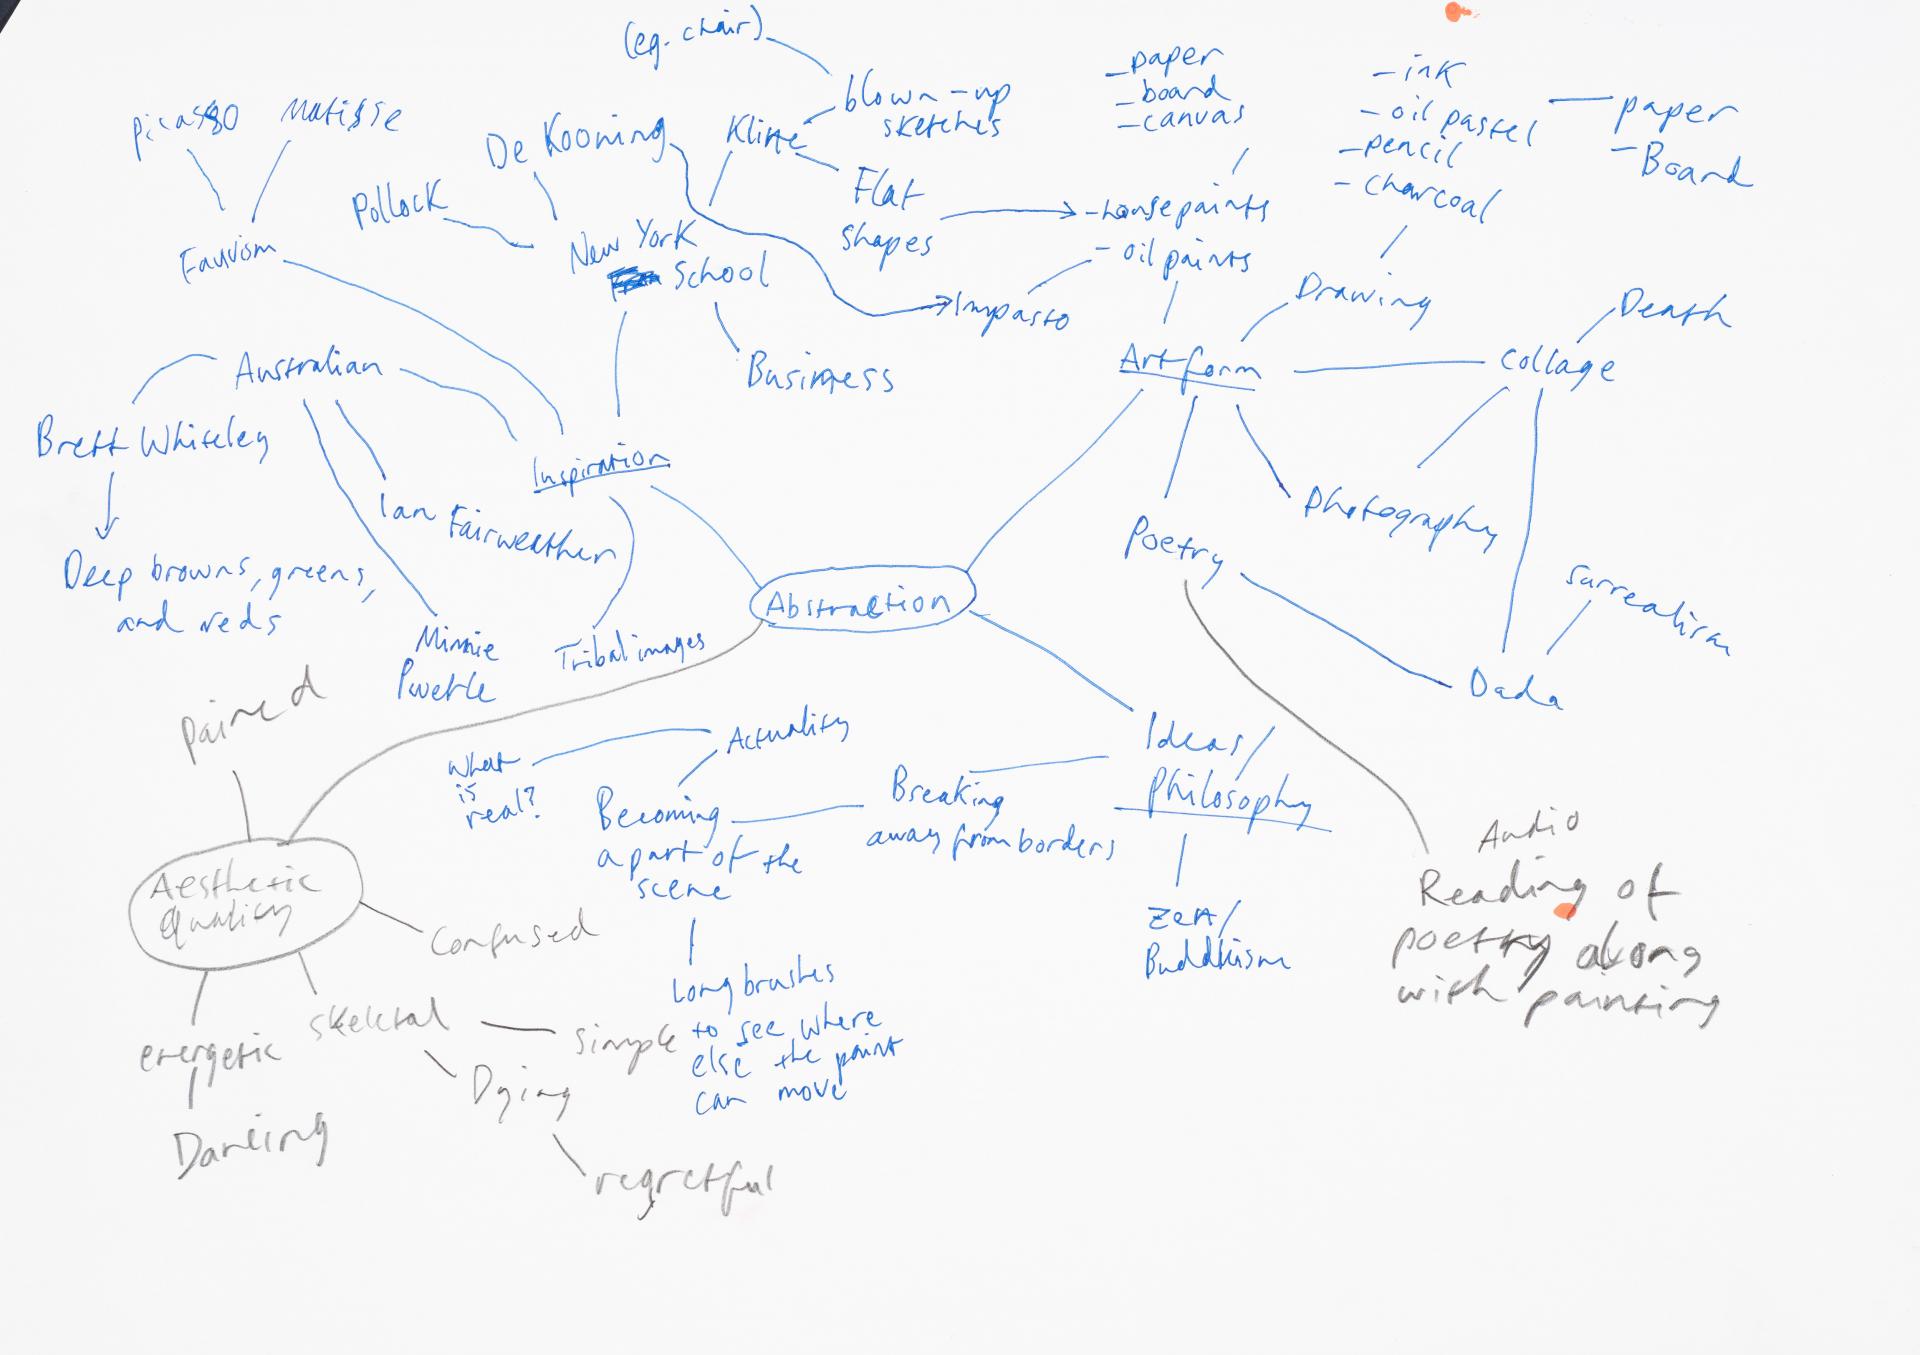 (eg. chair)
blown-up
sketches
- paper
- board
- canvas
- ink
- oil pastel
- pencil
- charcoal
paper
- Board
picasso
Matisse
De Kooning
Kline
Pollock
Flat
shapes
- housepaints
- oil paints
Fauvism
New York
School
Impasto
Drawing
Death
Australian
Business
Art form
Collage
Brett Whiteley
Inspiration
Ian Fairweather
Photography
Poetry
Deep browns, greens,
and reds
Abstraction
Surrealism
Minnie
Pwerle
Tribal images
Dada
Pained
Actuality
What
is
real?
Ideas/
Philosophy
Becoming
a part of the
scene
Breaking
away from borders
Audio
Reading of
poetry along
with painting
Aesthetic
Quality
Confused
Zen/
Buddhism
Long brushes
to see where
else the paint
can move
skeletal
simple
energetic
Dying
Dancing
regretful